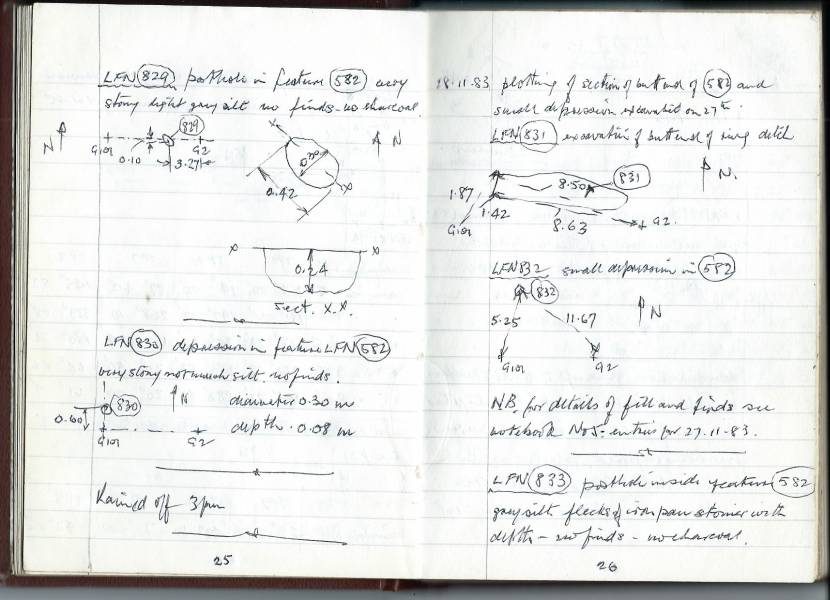 LFN 829 posthole in feature 582 very
stony light grey silt no finds - no charcoal.
N
829
G101
G2
0.10
3.27
X
N
0.42
X
X
X
0.24
Sect. X-X.
LFN 830 depression in feature LFN 582
very stony not much silt. no finds.
N
diameter 0.30 m
830
0.60
G101
G2
depth . 0.08 m
Rained off 3pm
25
18.11.83 plotting of section of butt end of 582 and
small depression excavated on 27th.
LFN 831 excavation of butt end of ring ditch
831
N.
8.50
1.87
1.42
8.63
G101
G2.
LFN 832 small depression in 582
832
5.25
11.67
N
G101
G2
NB. for details of fill and finds see
notebook No 5: entries for 27.11.83.
LFN 833 posthole inside feature 582
grey silt flecks of iron pan stonier with
depth - no finds - no charcoal.
26